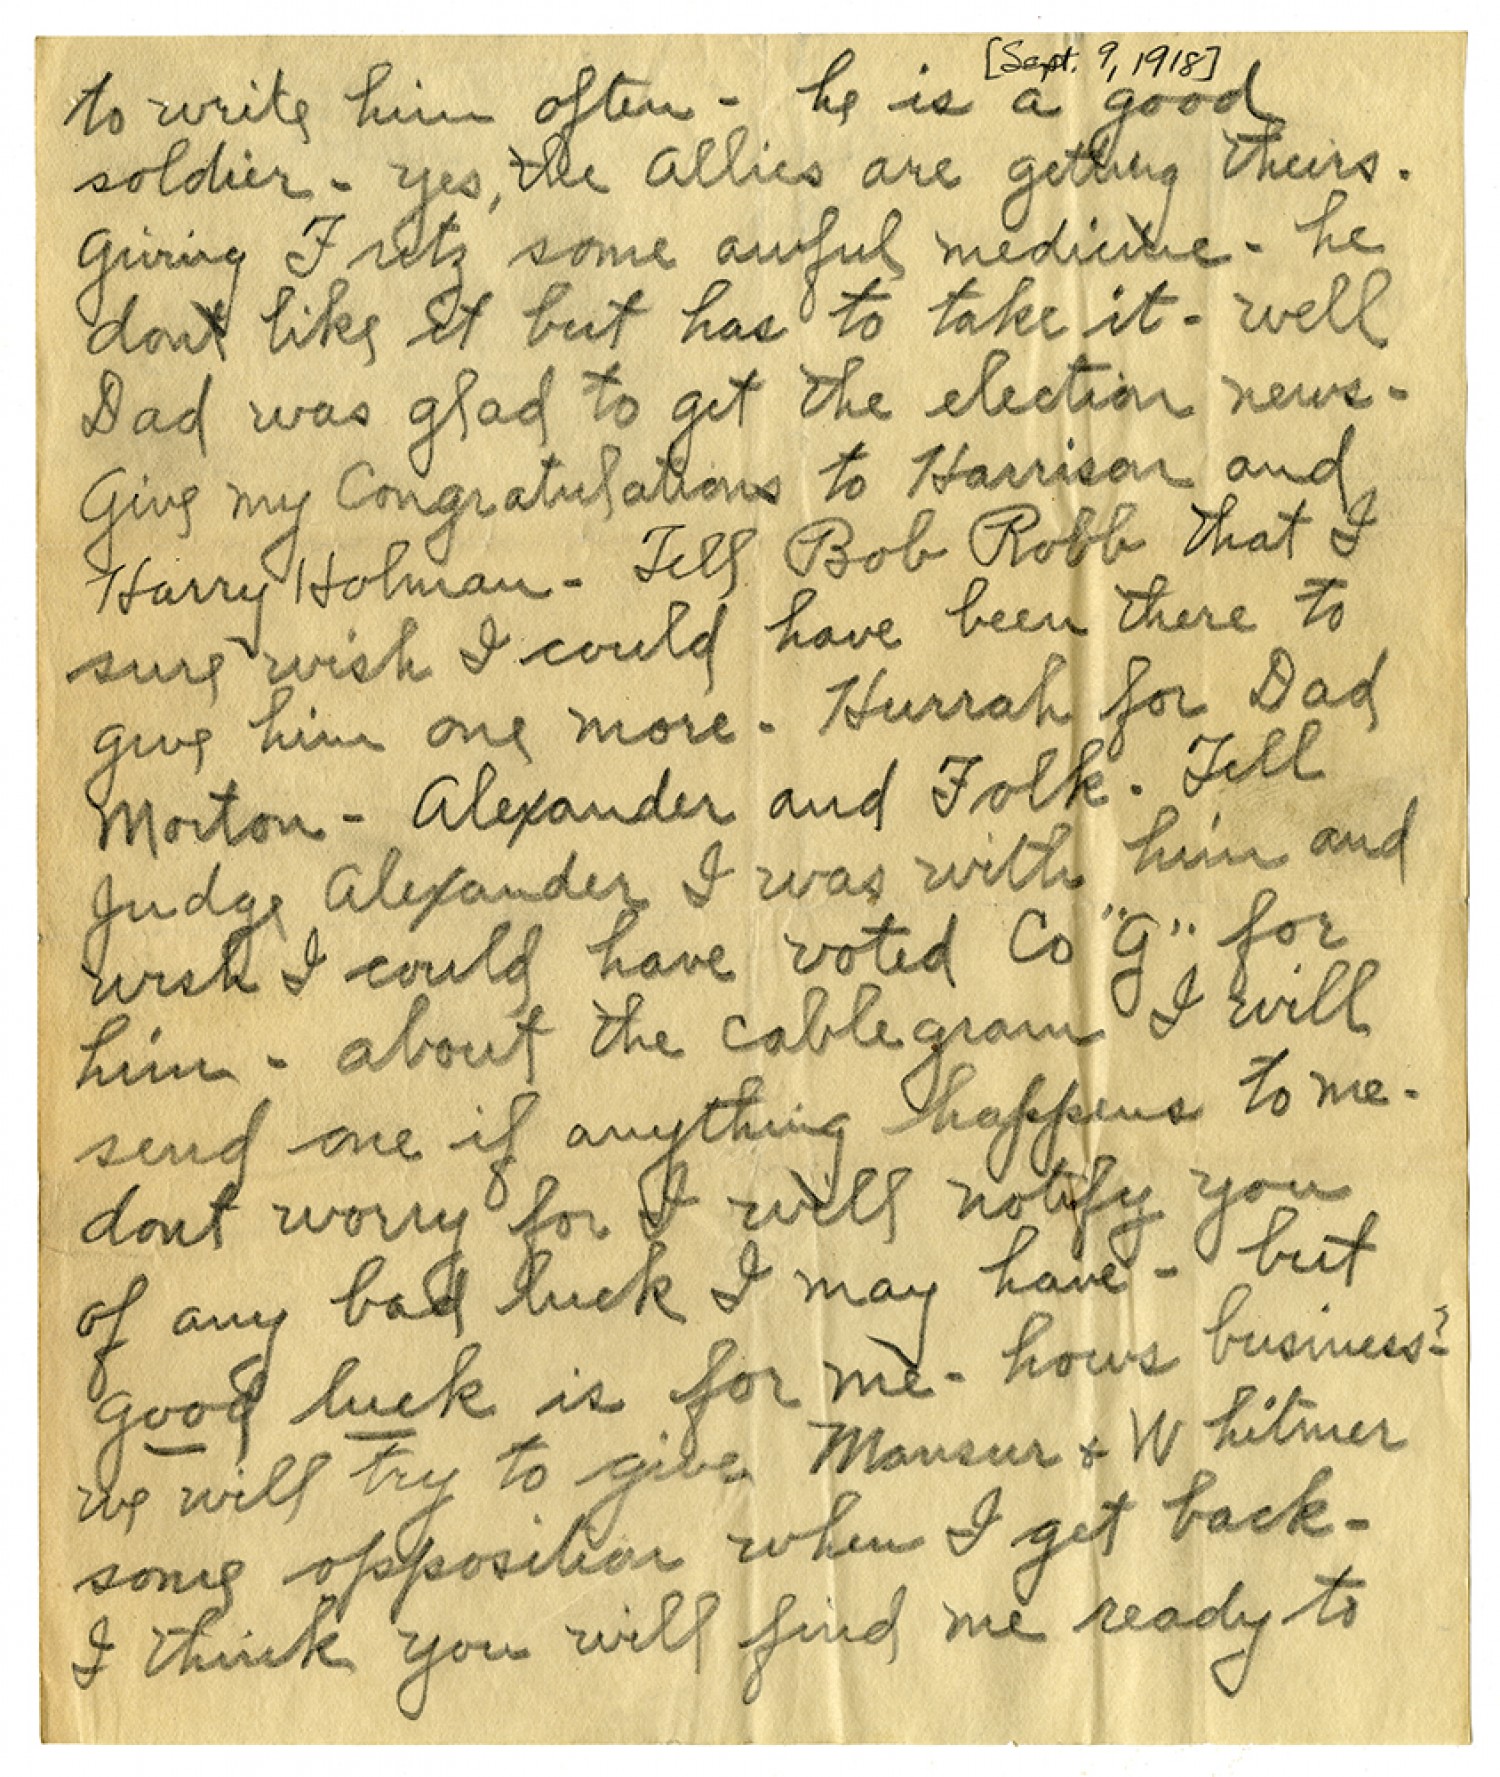 [Sept. 9, 1918]
to write him often - he is a good
soldier - yes, the Allies are getting theirs.
Giving Fritz some awful medicine - he
dont like it but has to take it - well
Dad was glad to get the election news -
Give my Congratulations to Harrison and
Harry Holman - Tell Bob Robb that I
sure wish I could have been there to
give him one more - Hurrah for Dad
Morton - Alexander and Folk. Tell
Judge Alexander I was with him and
wish I could have voted Co "G" for
him - about the cablegram I will
send one if anything happens to me -
dont worry for I will notify you
of any bad luck I may have - but
good luck is for me - hows business? -
we will try to give Mansur & Whitmer
some opposition when I get back -
I think you will find me ready to